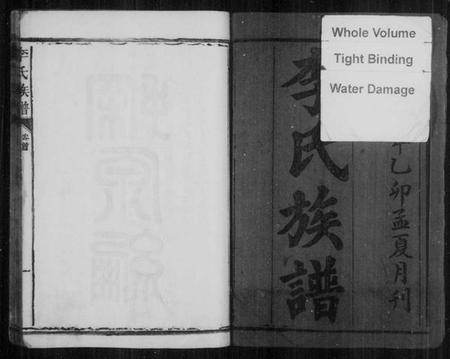 Whole Volume
Tight Binding
Water Damage
乙卯孟夏月刊
李氏族譜
李氏族譜
卷首